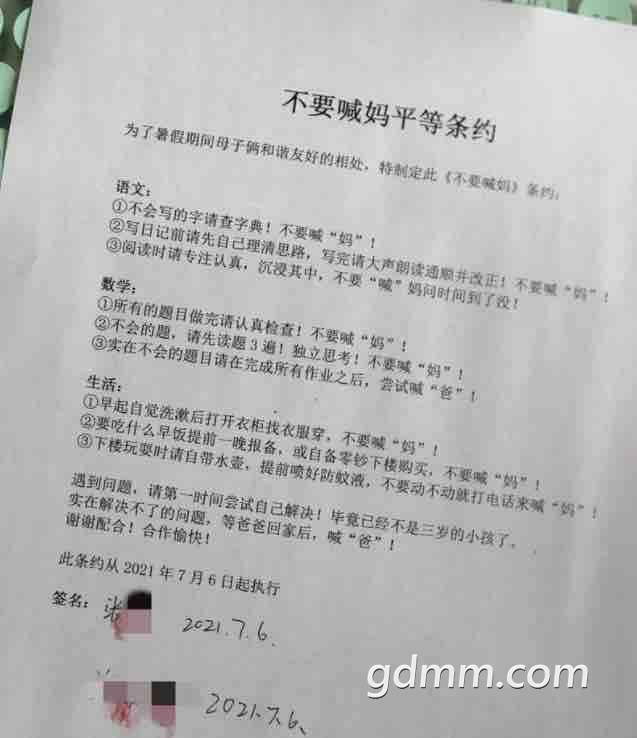 不要喊妈平等条约
为了暑假期间母子俩和谐友好的相处，特制定此《不要喊妈》条约：
语文：
①不会写的字请查字典！不要喊“妈”！
②写日记前请先自己理清思路，写完请大声朗读通顺并改正！不要喊“妈”！
③阅读时请专注认真，沉浸其中，不要“喊”妈问时间到了没！
数学：
①所有的题目做完请认真检查！不要喊“妈”！
②不会的题，请先读题3遍！独立思考！不要喊“妈”！
③实在不会的题目请在完成所有作业之后，尝试喊“爸”！
生活：
①早起自觉洗漱后打开衣柜找衣服穿，不要喊“妈”！
②要吃什么早饭提前一晚报备，或自备零钞下楼购买，不要喊“妈”！
③下楼玩耍时请自带水壶，提前喷好防蚊液，不要动不动就打电话来喊“妈”！
遇到问题，请第一时间尝试自己解决！毕竟已经不是三岁的小孩了。
实在解决不了的问题，等爸爸回家后，喊“爸”！
谢谢配合！合作愉快！
此条约从2021年7月6日起执行
签名：张 2021.7.6.
2021.7.6、
gdmm.com